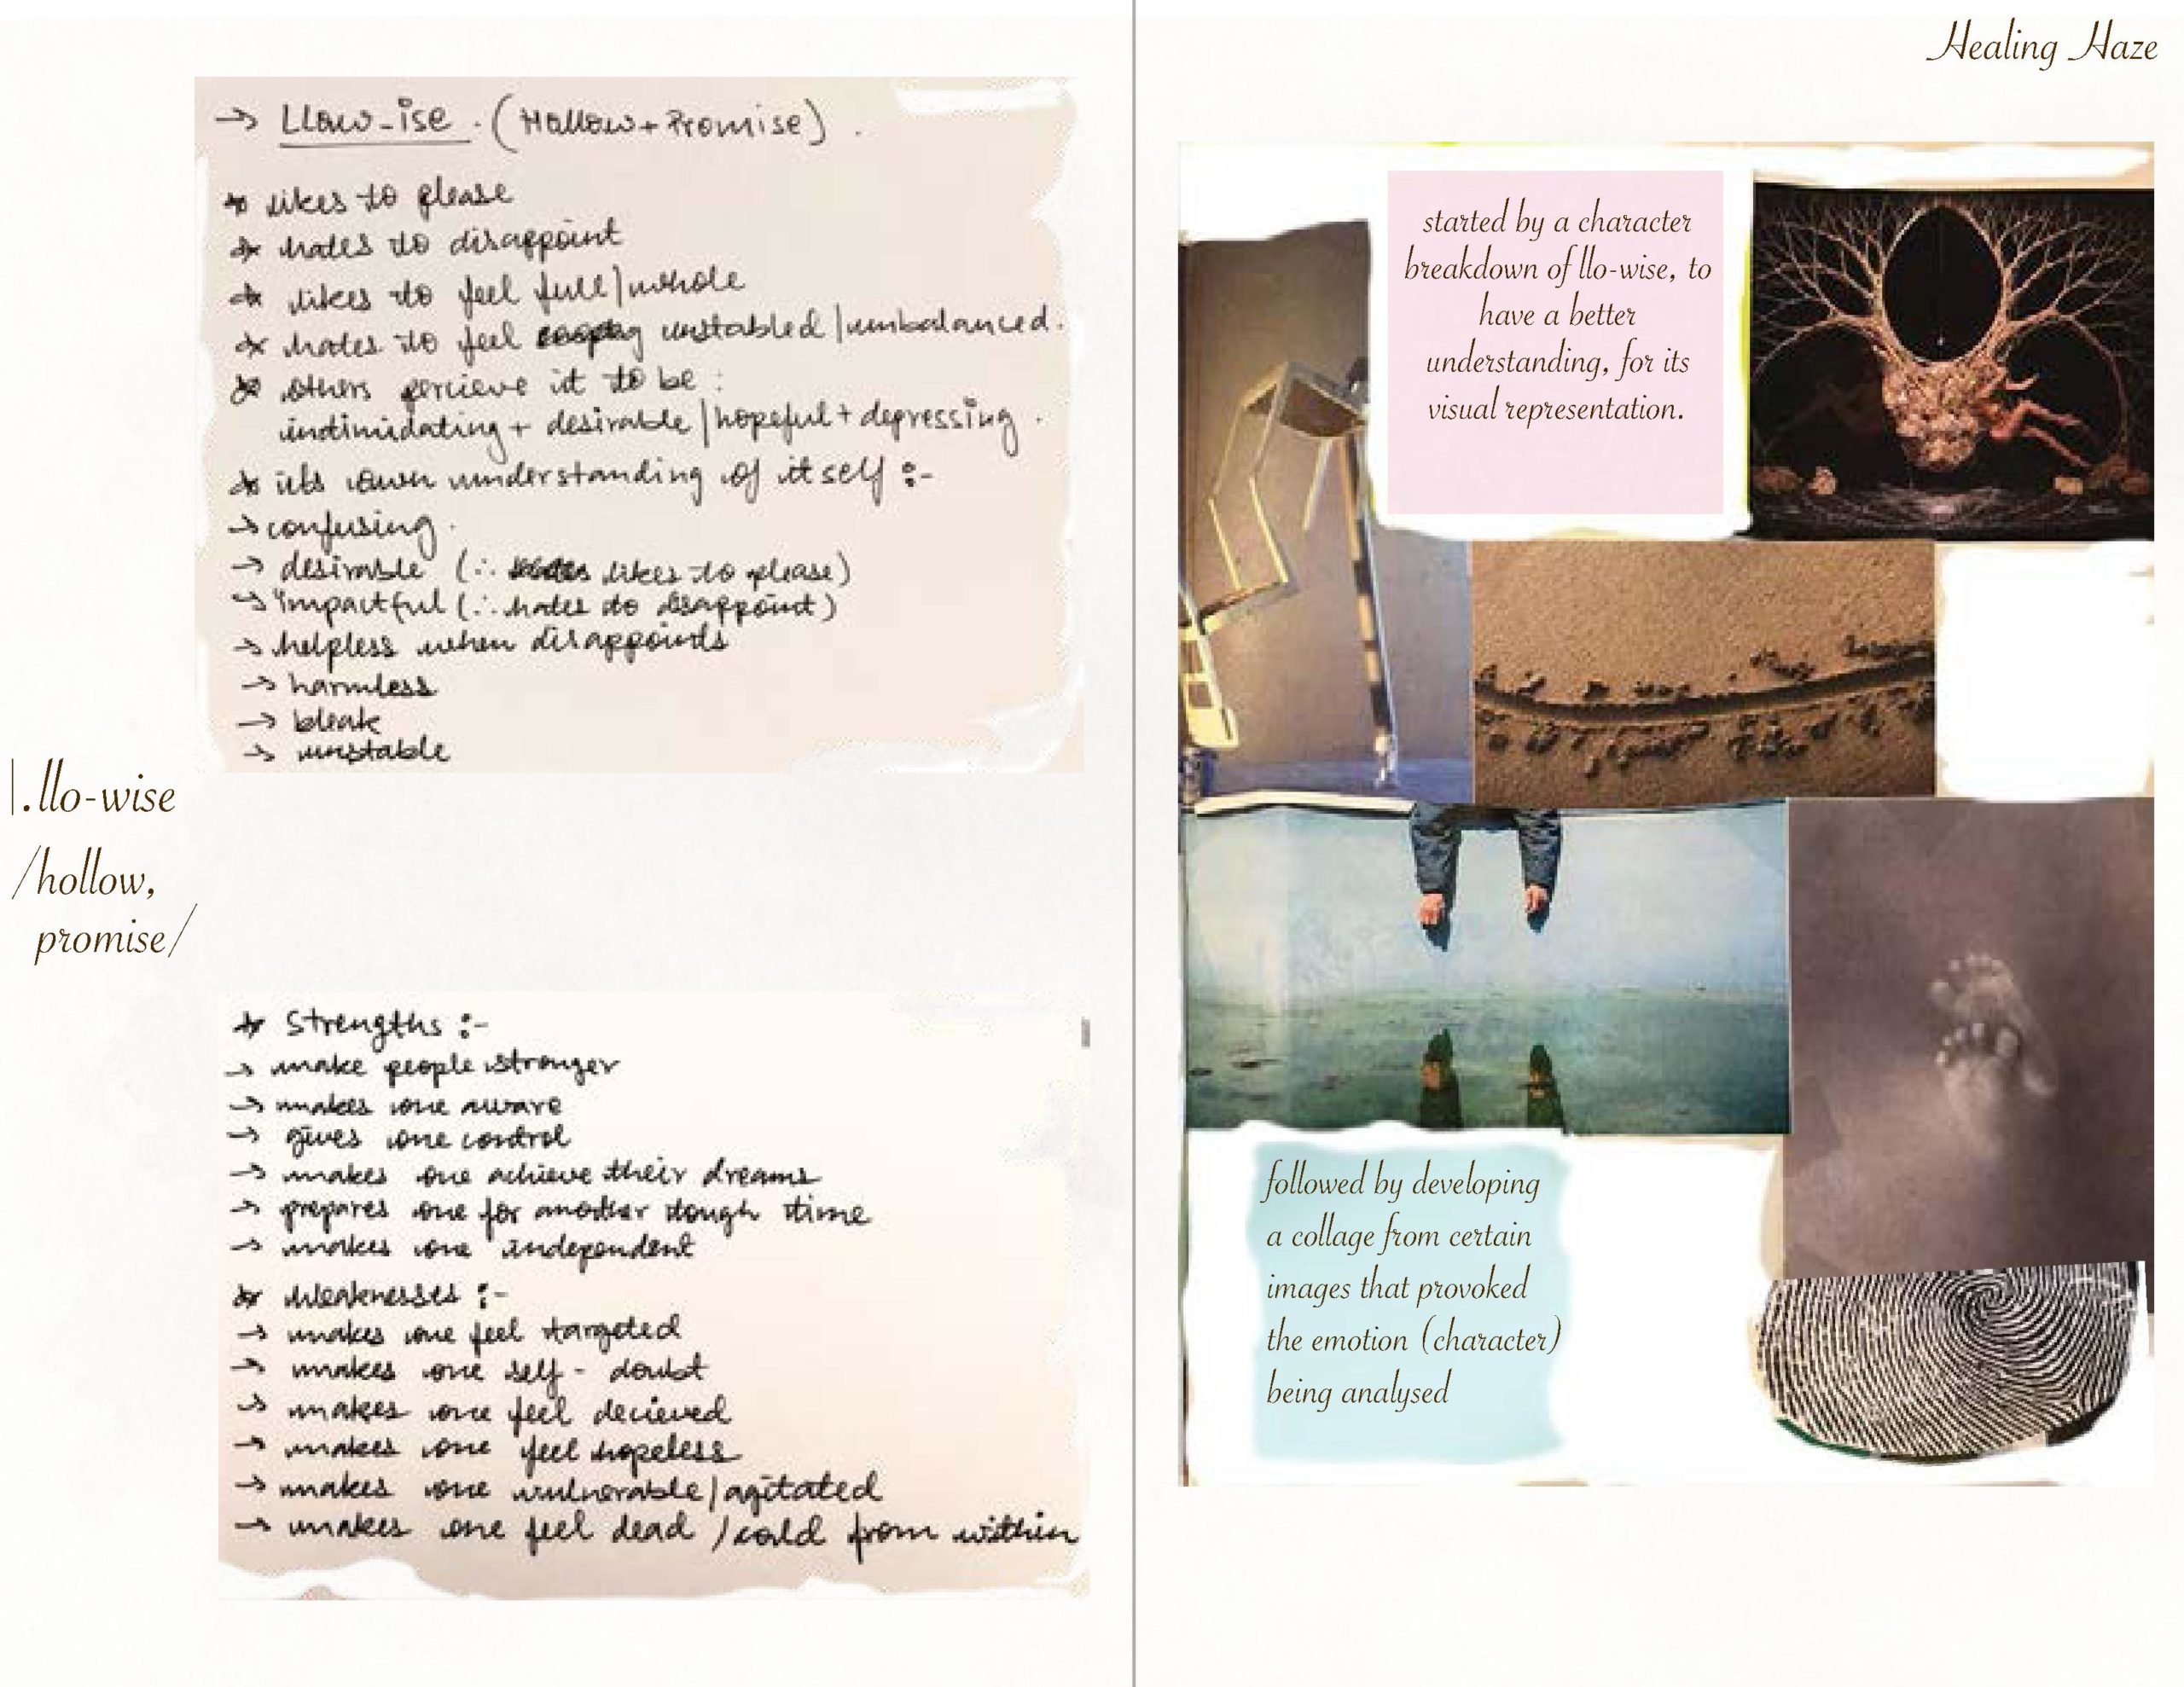 → Llow-ise . (Hollow + Promise) .
* likes to please
* hates to disappoint
* likes to feel full/whole
* hates to feel unstabled/unbalanced.
* others percieve it to be :
intimidating + desirable / hopeful + depressing .
* its own understanding of itself :-
→ confusing.
→ desirable (∴ likes to please)
→ impactful (∴ hates to disappoint)
→ helpless when disappoints
→ harmless
→ bleak
→ unstable
1.llo-wise
/hollow,
promise/
* Strengths :-
→ make people stronger
→ makes one aware
→ gives one control
→ makes one achieve their dreams
→ prepares one for another tough time
→ makes one independent
* Weaknesses :-
→ makes one feel targeted
→ makes one self - doubt
→ makes one feel decieved
→ makes one feel hopeless
→ makes one vulnerable/agitated
→ makes one feel dead / cold from within
Healing Haze
started by a character
breakdown of llo-wise, to
have a better
understanding, for its
visual representation.
followed by developing
a collage from certain
images that provoked
the emotion (character)
being analysed